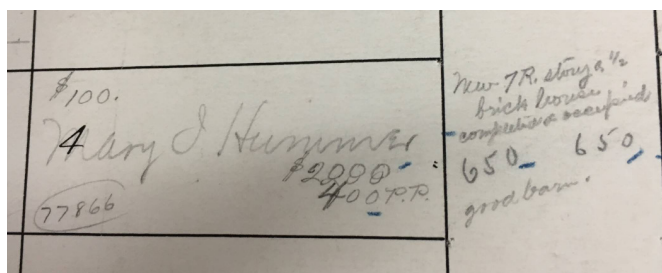 $100.
4
Mary J Hummer
$2000
400 P.P.
77866
New 7 R. story & 1/2
brick house
completed & occupied
650 650
good barn.